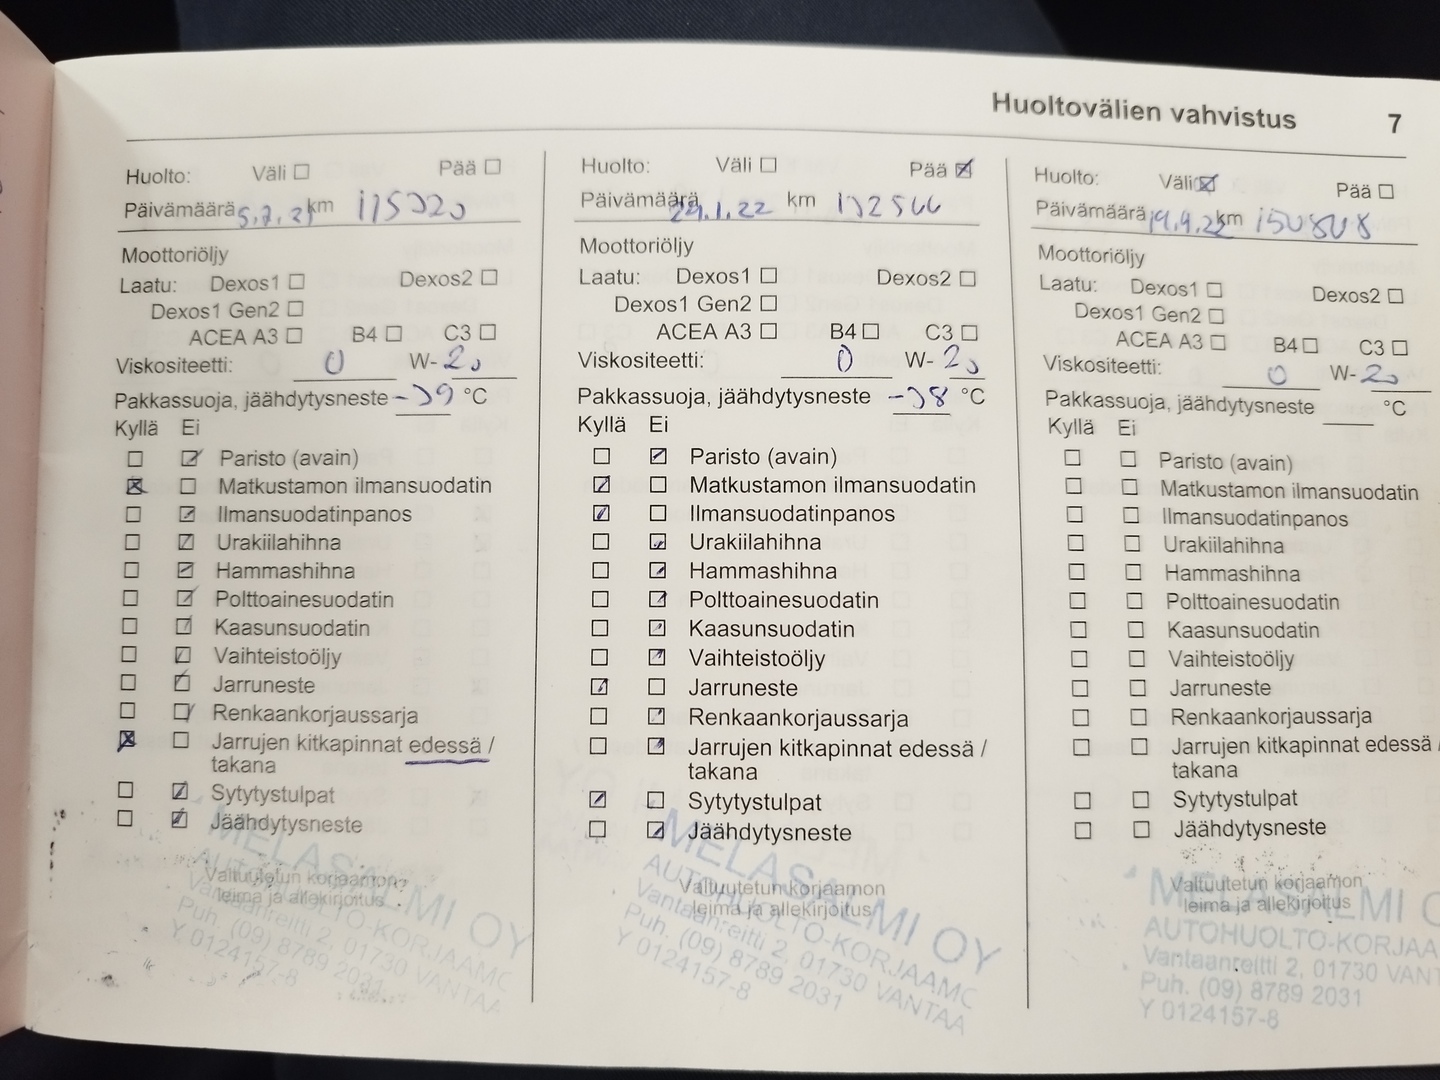 Huoltovälien vahvistus 7
Huolto: Väli ☐ Pää ☐
Päivämäärä 5.7.21 km
Moottoriöljy
Laatu: Dexos1 ☐ Dexos2 ☐
Dexos1 Gen2 ☐
ACEA A3 ☐ B4 ☐ C3 ☐
Viskositeetti: 0 W-20
Pakkassuoja, jäähdytysneste -39 °C
Kyllä Ei
☐ ☑ Paristo (avain)
☒ ☐ Matkustamon ilmansuodatin
☐ ☑ Ilmansuodatinpanos
☐ ☑ Urakiilahihna
☐ ☑ Hammashihna
☐ ☑ Polttoainesuodatin
☐ ☑ Kaasunsuodatin
☐ ☑ Vaihteistoöljy
☐ ☑ Jarruneste
☐ ☑ Renkaankorjaussarja
☒ ☐ Jarrujen kitkapinnat edessä /
takana
☐ ☑ Sytytystulpat
☐ ☑ Jäähdytysneste
Valtuutetun korjaamon
leima ja allekirjoitus
MELASALMI OY
AUTOHUOLTO-KORJAAMO
Vantaanreitti 2, 01730 VANTAA
Puh. (09) 8789 2031
Y 0124157-8
Huolto: Väli ☐ Pää ☒
Päivämäärä 24.1.22 km 132566
Moottoriöljy
Laatu: Dexos1 ☐ Dexos2 ☐
Dexos1 Gen2 ☐
ACEA A3 ☐ B4 ☐ C3 ☐
Viskositeetti: 0 W-20
Pakkassuoja, jäähdytysneste -38 °C
Kyllä Ei
☐ ☑ Paristo (avain)
☑ ☐ Matkustamon ilmansuodatin
☑ ☐ Ilmansuodatinpanos
☐ ☑ Urakiilahihna
☐ ☑ Hammashihna
☐ ☑ Polttoainesuodatin
☐ ☑ Kaasunsuodatin
☐ ☑ Vaihteistoöljy
☑ ☐ Jarruneste
☐ ☑ Renkaankorjaussarja
☐ ☑ Jarrujen kitkapinnat edessä /
takana
☑ ☐ Sytytystulpat
☐ ☑ Jäähdytysneste
Valtuutetun korjaamon
leima ja allekirjoitus
MELASALMI OY
AUTOHUOLTO-KORJAAMO
Vantaanreitti 2, 01730 VANTAA
Puh. (09) 8789 2031
Y 0124157-8
Huolto: Väli ☒ Pää ☐
Päivämäärä 19.9.22 km 150808
Moottoriöljy
Laatu: Dexos1 ☐ Dexos2 ☐
Dexos1 Gen2 ☐
ACEA A3 ☐ B4 ☐ C3 ☐
Viskositeetti: 0 W-20
Pakkassuoja, jäähdytysneste °C
Kyllä Ei
☐ ☐ Paristo (avain)
☐ ☐ Matkustamon ilmansuodatin
☐ ☐ Ilmansuodatinpanos
☐ ☐ Urakiilahihna
☐ ☐ Hammashihna
☐ ☐ Polttoainesuodatin
☐ ☐ Kaasunsuodatin
☐ ☐ Vaihteistoöljy
☐ ☐ Jarruneste
☐ ☐ Renkaankorjaussarja
☐ ☐ Jarrujen kitkapinnat edessä /
takana
☐ ☐ Sytytystulpat
☐ ☐ Jäähdytysneste
Valtuutetun korjaamon
leima ja allekirjoitus
MELASALMI O
AUTOHUOLTO-KORJAA
Vantaanreitti 2, 01730 VANT
Puh. (09) 8789 2031
Y 0124157-8